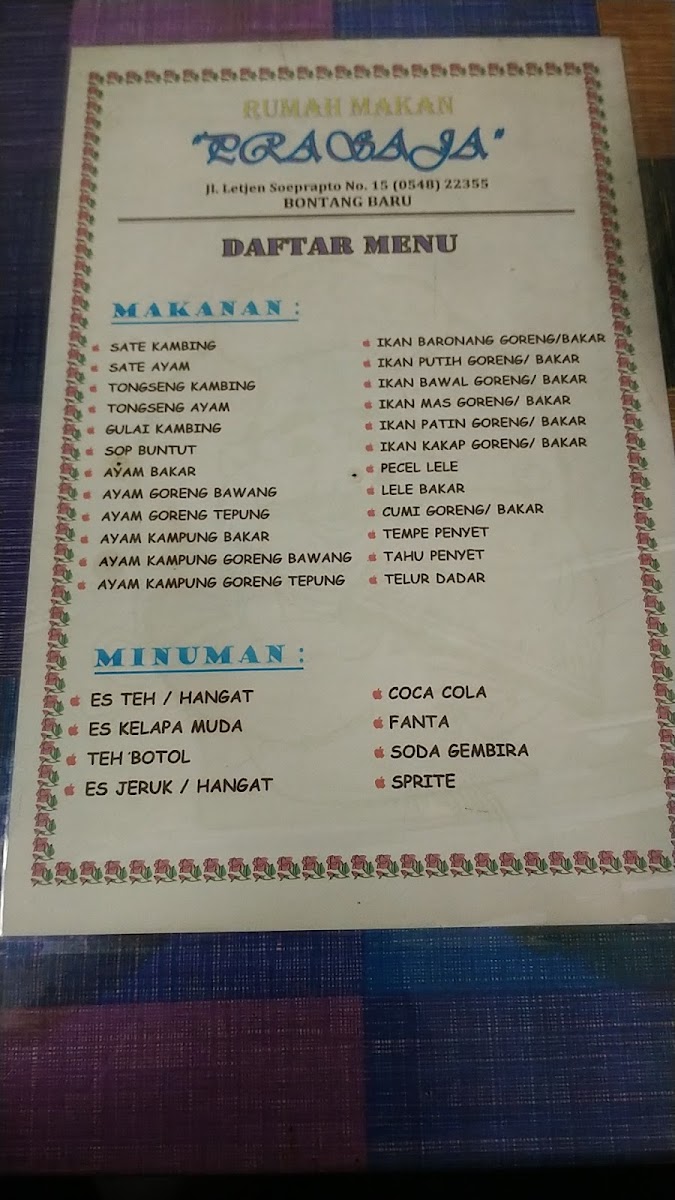 RUMAH MAKAN
"PRASAJA"
Jl. Letjen Soeprapto No. 15 (0548) 22355
BONTANG BARU
DAFTAR MENU
MAKANAN :
SATE KAMBING
SATE AYAM
TONGSENG KAMBING
TONGSENG AYAM
GULAI KAMBING
SOP BUNTUT
AYAM BAKAR
AYAM GORENG BAWANG
AYAM GORENG TEPUNG
AYAM KAMPUNG BAKAR
AYAM KAMPUNG GORENG BAWANG
AYAM KAMPUNG GORENG TEPUNG
IKAN BARONANG GORENG/BAKAR
IKAN PUTIH GORENG/ BAKAR
IKAN BAWAL GORENG/ BAKAR
IKAN MAS GORENG/ BAKAR
IKAN PATIN GORENG/ BAKAR
IKAN KAKAP GORENG/ BAKAR
PECEL LELE
LELE BAKAR
CUMI GORENG/ BAKAR
TEMPE PENYET
TAHU PENYET
TELUR DADAR
MINUMAN :
ES TEH / HANGAT
ES KELAPA MUDA
TEH BOTOL
ES JERUK / HANGAT
COCA COLA
FANTA
SODA GEMBIRA
SPRITE